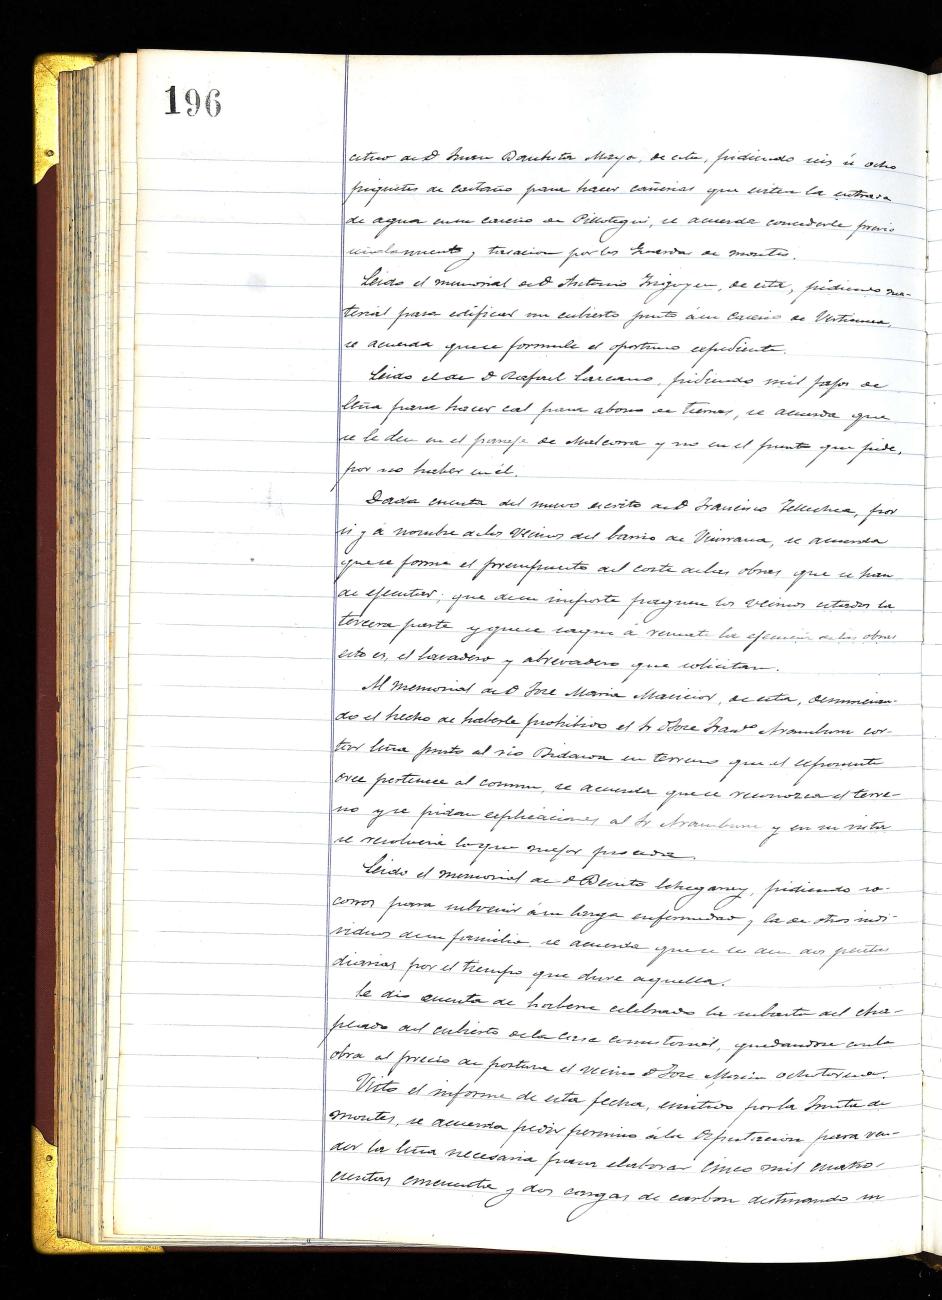 196
de D. Juan Bautista Maya, de esta, pidiendo seis ú ocho
piquetes de castaño para hacer cañerias que eviten la entrada
de agua en su caserio de Pillotegui, se acuerda concederle previo
señalamiento y tasacion por los Guardas de montes.
Leido el memorial de D. Antonio Irigoyen, de esta, pidiendo ma-
terial para edificar un cubierto junto á su caserio de
se acuerda que se formule el oportuno expediente.
Leido el de D. Rafael Lazcano, pidiendo mil fajos de
leña para hacer cal para abono de tierras, se acuerda que
se le den en el paraje de Malcorra y no en el punto que pide,
por no haber en él.
Dada cuenta del nuevo escrito de D. Francisco Tellechea, por
sí y á nombre de los vecinos del barrio de se acuerda
que se forme el presupuesto del coste de las obras que se han
de ejecutar; que de su importe paguen los vecinos citados la
tercera parte y que se saque á remate la ejecucion de las obras
esto es, el lavadero y abrevadero que solicitan.
Al memorial de D. Jose Maria de esta, denuncian-
do el hecho de haberle prohibido el Sr. D. Jose Fran.co Aramburu cor-
tar leña junto al rio Bidasoa en terreno que el exponente
cree pertenece al comun, se acuerda que se reconozca el terre-
no y se pidan esplicaciones al Sr. Aramburu y en su vista
se resolverá lo que mejor proceda.
Leido el memorial de D. Benito Echegaray, pidiendo so-
corros para subvenir á su larga enfermedad y la de otros indi-
viduos de su familia, se acuerda que se le den dos pesetas
diarias por el tiempo que dure aquella.
Se dió cuenta de haberse celebrado la subasta del cha-
peado del cubierto de la Casa Consistorial, quedandose con la
obra al precio de postura el vecino D. Jose Maria Ochotorena.
Visto el informe de esta fecha, emitido por la Junta de
montes, se acuerda pedir permiso á la Diputacion para ven-
der la leña necesaria para elaborar cinco mil cuatro-
cientas cincuenta y dos cargas de carbon destinando su